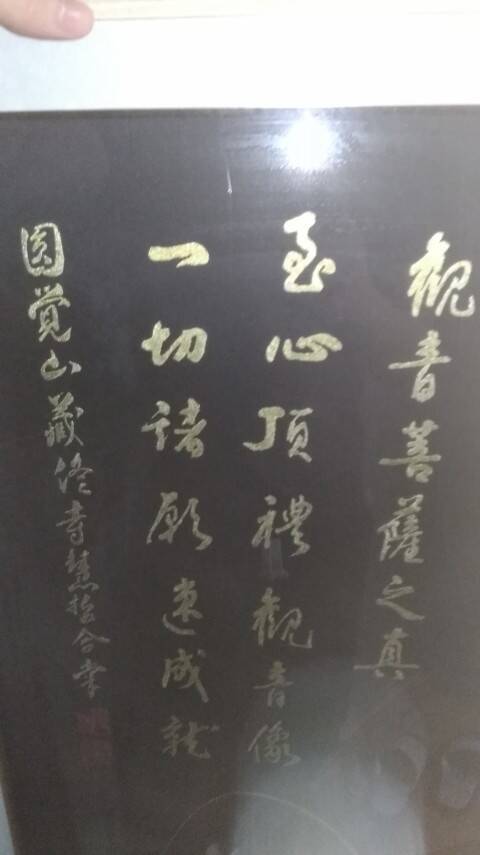 觀音菩薩之真
至心頂禮觀音像
一切諸願速成就
圓覺山藏修寺慧拴合掌